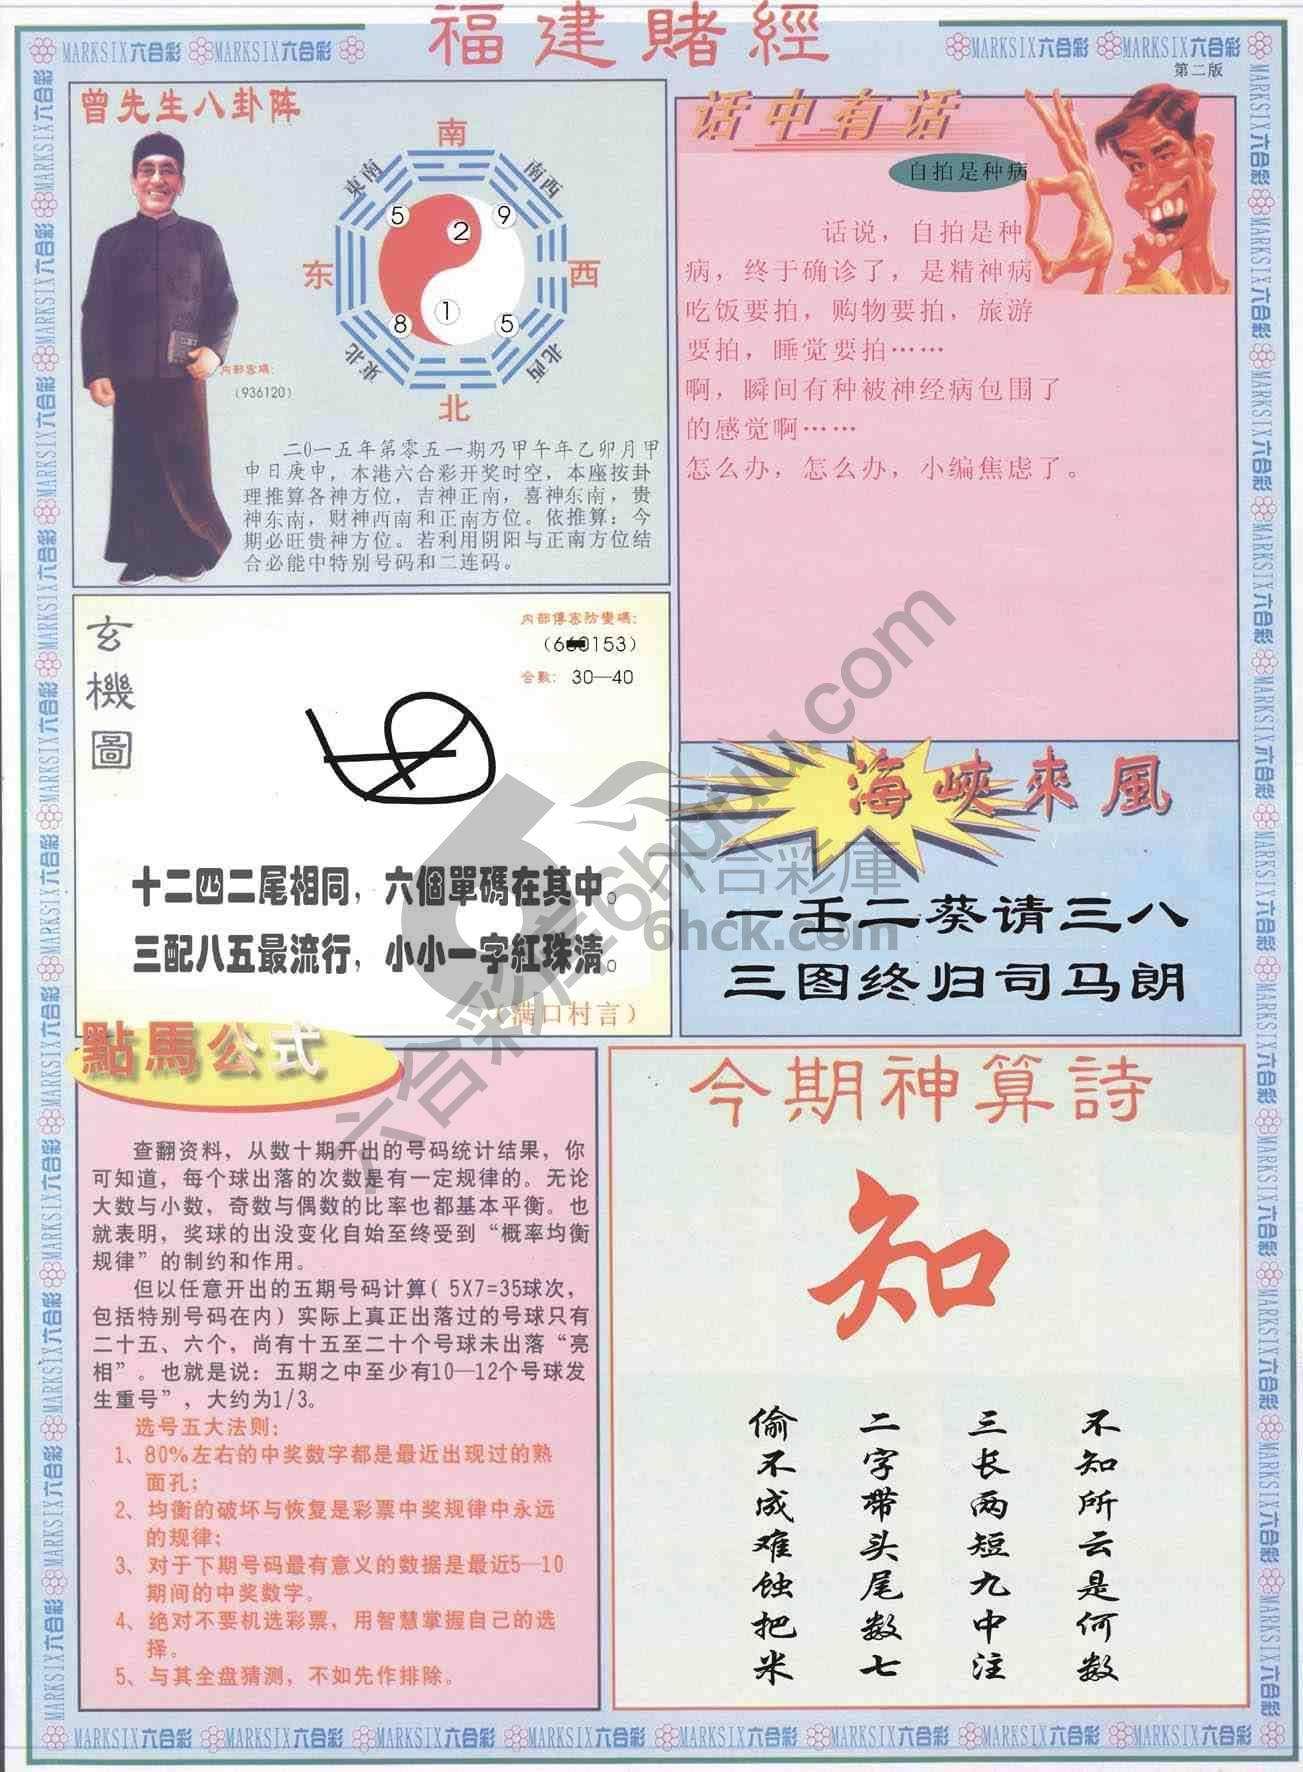 福建賭經
MARKSIX六合彩 MARKSIX六合彩
MARKSIX六合彩 MARKSIX六合彩
第二版
曾先生八卦阵
南
東南
南西
5
9
2
东
西
1
8
5
東北
北西
北
内部密碼:
(936120)
二0一五年第零五一期乃甲午年乙卯月甲
申日庚申，本港六合彩开奖时空，本座按卦
理推算各神方位，吉神正南，喜神东南，贵
神东南，财神西南和正南方位。依推算：今
期必旺贵神方位。若利用阴阳与正南方位结
合必能中特别号码和二连码。
话中有话
自拍是种病
话说，自拍是种
病，终于确诊了，是精神病
吃饭要拍，购物要拍，旅游
要拍，睡觉要拍……
啊，瞬间有种被神经病包围了
的感觉啊……
怎么办，怎么办，小编焦虑了。
玄機圖
内部傳密防變碼:
合數: 30—40
十二四二尾相同，六個單碼在其中。
三配八五最流行，小小一字紅珠清。
（满口村言）
海峽來風
一壬二葵请三八
三图终归司马朗
六合彩庫
6hck.com
點馬公式
查翻资料，从数十期开出的号码统计结果，你
可知道，每个球出落的次数是有一定规律的。无论
大数与小数，奇数与偶数的比率也都基本平衡。也
就表明，奖球的出没变化自始至终受到“概率均衡
规律”的制约和作用。
但以任意开出的五期号码计算( 5X7=35球次，
包括特别号码在内）实际上真正出落过的号球只有
二十五、六个，尚有十五至二十个号球未出落“亮
相”。也就是说：五期之中至少有10—12个号球发
生重号”，大约为1/3。
选号五大法则:
1、80%左右的中奖数字都是最近出现过的熟
面孔;
2、均衡的破坏与恢复是彩票中奖规律中永远
的规律;
3、对于下期号码最有意义的数据是最近5—10
期间的中奖数字。
4、绝对不要机选彩票，用智慧掌握自己的选
择。
5、与其全盘猜测，不如先作排除。
今期神算詩
知
不知所云是何数
三长两短九中注
二字带头尾数七
偷不成难蚀把米
MARKSIX六合彩 MARKSIX六合彩 MARKSIX六合彩 MARKSIX六合彩 MARKSIX六合彩 MARKSIX六合彩 MARKSIX六合彩 MARKSIX六合彩